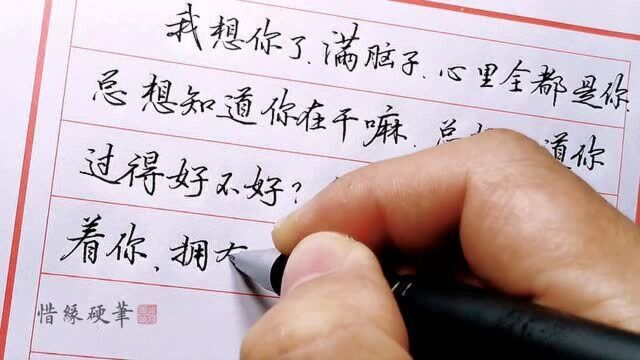 我想你了、满脑子、心里全都是你、
总想知道你在干嘛、总 道你
过得好不好?
着你、拥
惜緣硬筆